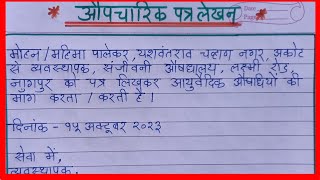 औपचारिक पत्र लेखन
मोहन/महिमा पालेकर, यशवंतराव चव्हाण नगर, अकोट
से व्यवस्थापक, संजीवनी औषधालय, लक्ष्मी रोड,
नागपुर को पत्र लिखकर आयुर्वेदिक औषधियों की
माँग करता / करती है।
दिनांक - १५ अक्टूबर २०२३
सेवा में,
व्यवस्थापक,